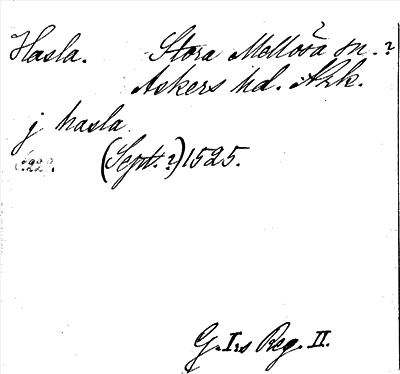 Hasla. Stora Mellösa sn.?
Askers hd. Ahk.
j hasla
(Sept.?) 1525.
G. I:s Reg. II.